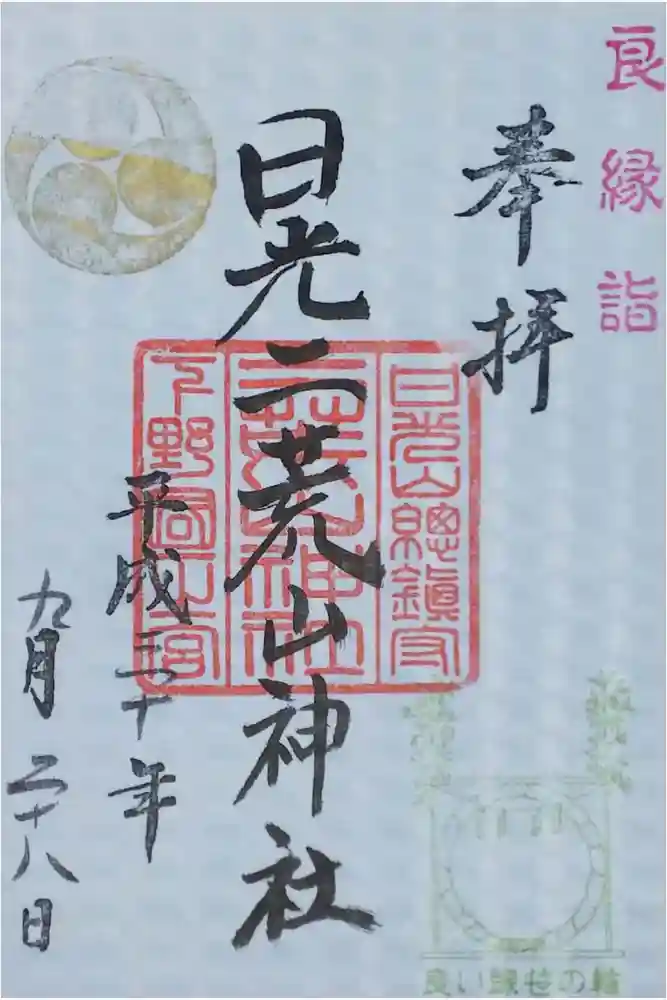 良縁詣
奉拝
日光二荒山神社
日光山總鎮守
二荒山神社
下野國一宮
平成三十年
九月二十八日
良い縁世の輪